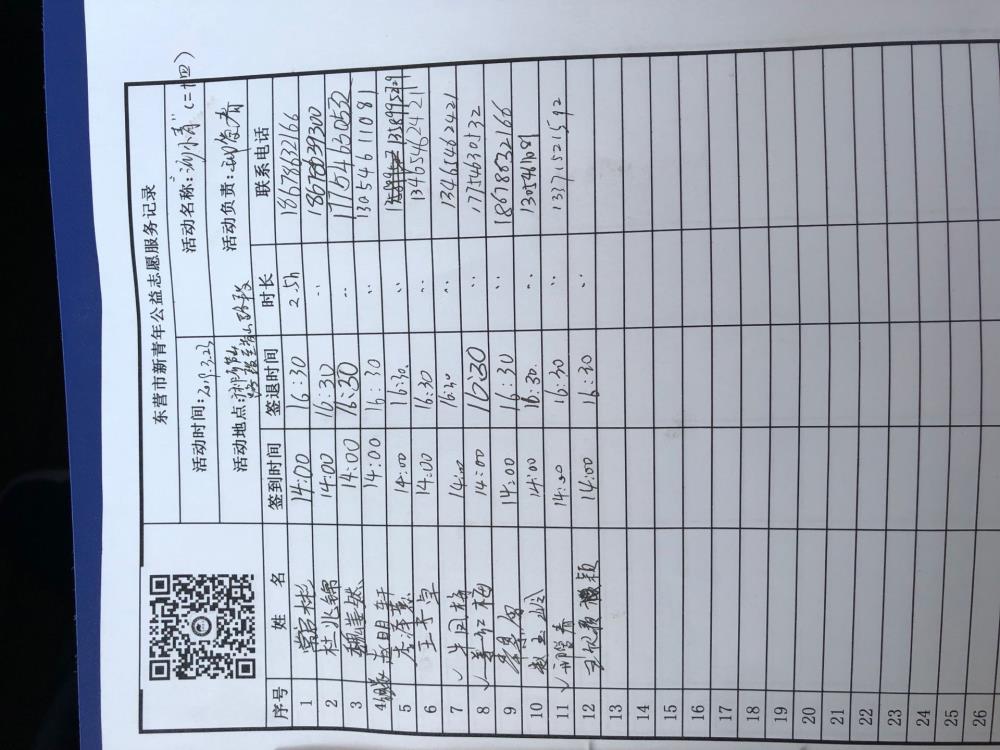 东营市新青年公益志愿服务记录
活动时间：2019.3.23 活动名称：
活动地点： 活动负责：
序号 姓 名 签到时间 签退时间 时长 联系电话
1 14:00 16:30 2.5h 18678632166
2 杜兆锦 14:00 16:30 〃 18678039300
3 魏 14:00 16:30 〃 17754630532
4 赵明轩 14:00 16:30 〃 13054611081
5 14:00 16:30 〃 13589995329
6 王 14:00 16:30 〃 13465462421
7 ✓ 14:00 16:30 〃 13465462421
8 ✓ 14:00 16:30 〃 17754630532
9 14:00 16:30 〃 18678632166
10 赵玉 14:00 16:30 〃 13054611081
11 ✓ 14:00 16:30 〃 13371521592
12 14:00 16:30 〃
13
14
15
16
17
18
19
20
21
22
23
24
25
26